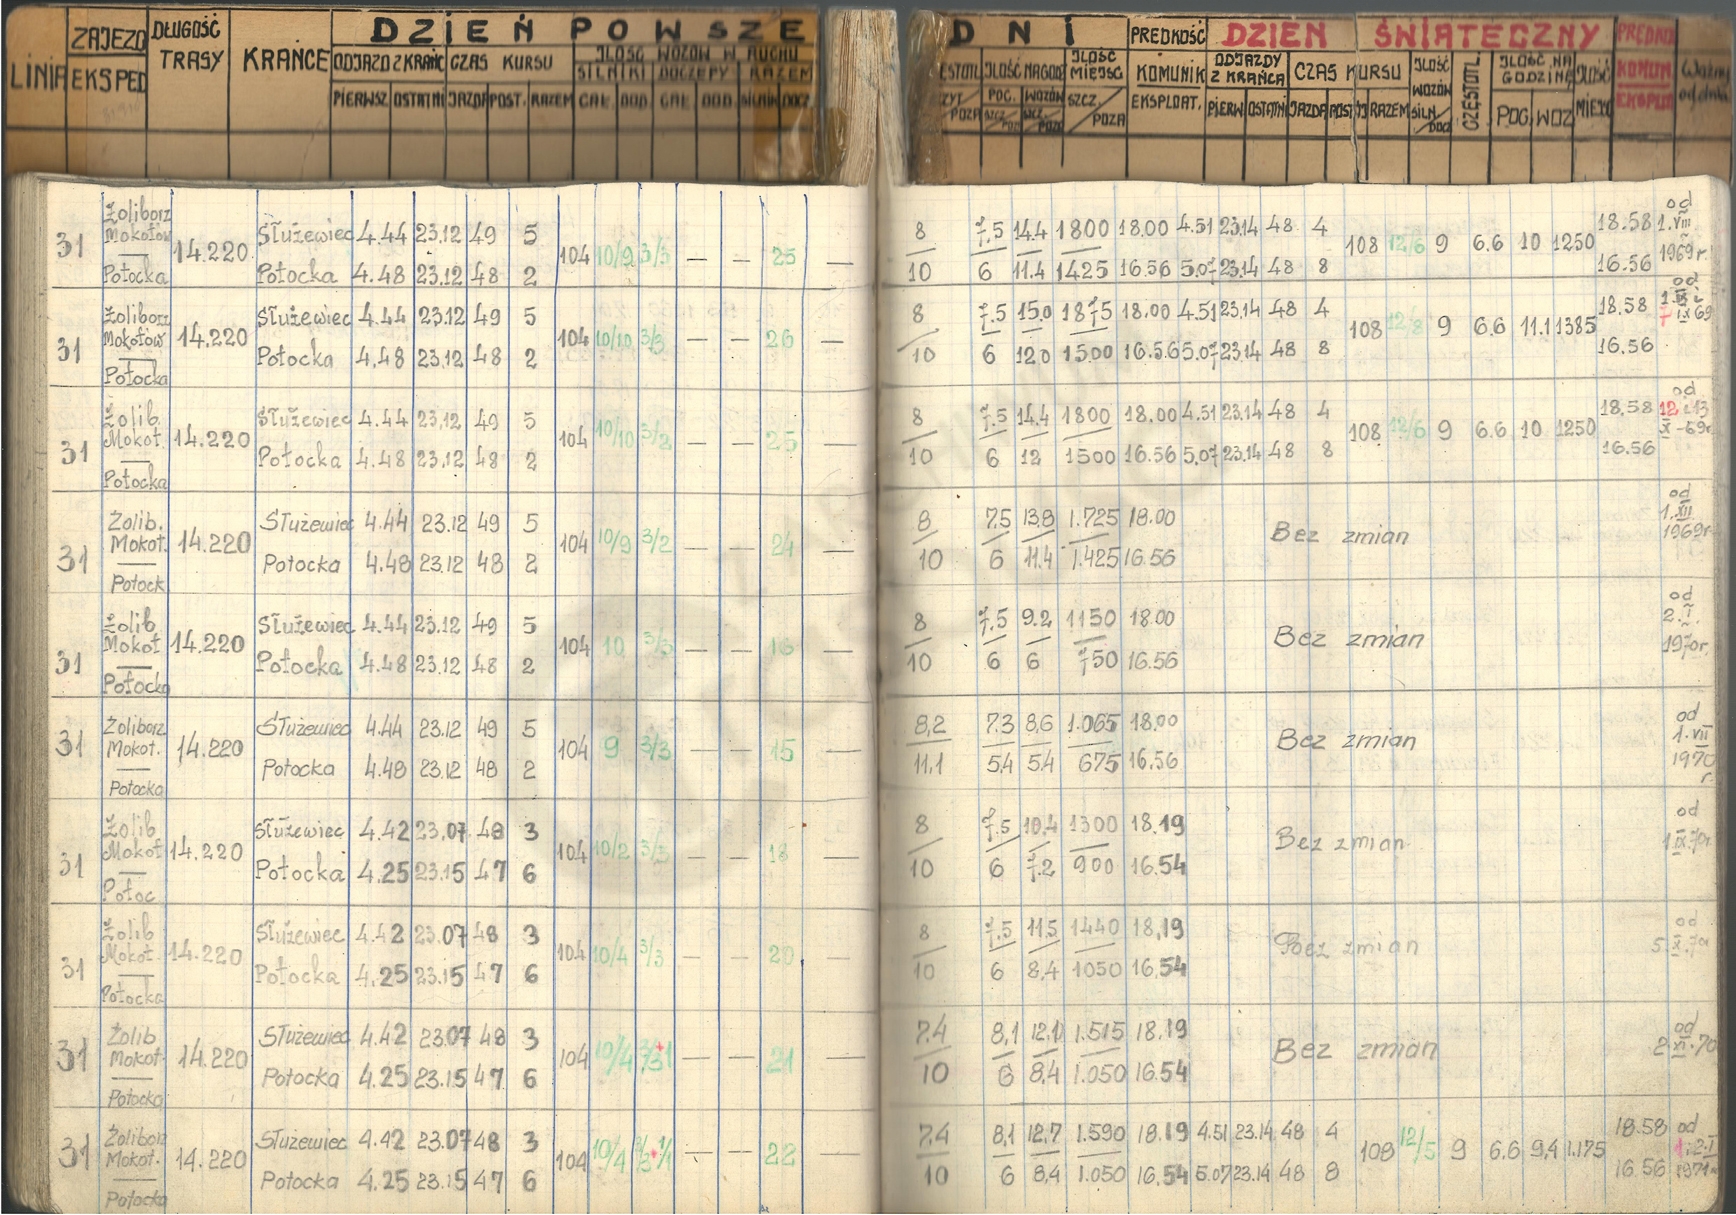 LINIA ZAJEZD EKSPED DŁUGOŚĆ TRASY KRAŃCE DZIEŃ POWSZE
ODJAZD Z KRAŃC CZAS KURSU ILOŚĆ WOZÓW W RUCHU
SILNIKI DOCZEPY RAZEM
PIERWSZ OSTATNI JAZDA POST. RAZEM CAŁ. DOD. CAŁ. DOD. SILNIK DOCZ.
DNI PRĘDKOŚĆ KOMUNIK EKSPLOAT. DZIEŃ ŚWIĄTECZNY
ILOŚĆ NA GODZ ILOŚĆ MIEJSC
POC. WOZÓW SZCZ. POZA
ODJAZDY Z KRAŃCA CZAS KURSU ILOŚĆ WOZÓW SILN. DOCZ CZĘSTOTL. ILOŚĆ NA GODZINĘ POC. WOZ
PIERW OSTATNI JAZDA POST RAZEM
31 Żoliborz Mokotów Potocka 14.220
Służewiec 4.44 23.12 49 5
Potocka 4.48 23.12 48 2
104 10/9 3/3 — — 25 —
8 7.5 14.4 1800 18.00 4.51 23.14 48 4
10 6 11.4 1425 16.56 5.07 23.14 48 8
108 12/6 9 6.6 10 1250
18.58 16.56 od 1.VIII 1969r.
31 Żoliborz Mokotów Potocka 14.220
Służewiec 4.44 23.12 49 5
Potocka 4.48 23.12 48 2
104 10/10 3/3 — — 26 —
8 7.5 15,0 1875 18.00 4.51 23.14 48 4
10 6 12.0 1500 16.56 5.07 23.14 48 8
108 12/8 9 6.6 11.1 1385
18.58 16.56 od
31 Żolib. Mokot. Potocka 14.220
Służewiec 4.44 23.12 49 5
Potocka 4.48 23.12 48 2
104 10/10 3/2 — — 25 —
8 7.5 14.4 1800 18.00 4.51 23.14 48 4
10 6 12 1500 16.56 5.07 23.14 48 8
108 12/6 9 6.6 10 1250
18.58 16.56 od 12 i 13 X-69r
31 Żolib. Mokot. Potock 14.220
Służewiec 4.44 23.12 49 5
Potocka 4.48 23.12 48 2
104 10/9 3/2 — — 24 —
8 7.5 13,8 1.725 18.00
10 6 11.4 1.425 16.56
Bez zmian od 1.XII 1969r.
31 Żolib Mokot Potocka 14.220
Służewiec 4.44 23.12 49 5
Potocka 4.48 23.12 48 2
104 10 3/3 — — 16 —
8 7.5 9.2 1150 18.00
10 6 6 750 16.56
Bez zmian od 2.I. 1970r.
31 Żoliborz Mokot. Potocka 14.220
Służewiec 4.44 23.12 49 5
Potocka 4.48 23.12 48 2
104 9 3/3 — — 15 —
8,2 7.3 8,6 1.065 18.00
11,1 5,4 5,4 675 16.56
Bez zmian od 1.VII 1970 r.
31 Żolib Mokot Potoc 14.220
Służewiec 4.42 23.07 48 3
Potocka 4.25 23.15 47 6
104 10/2 3/3 — — 18 —
8 7.5 10,4 1300 18.19
10 6 7.2 900 16.54
Bez zmian od 1.IX.70r.
31 Żolib Mokot. Potocka 14.220
Służewiec 4.42 23.07 48 3
Potocka 4.25 23.15 47 6
104 10/4 3/3 — — 20 —
8 7.5 11,5 1440 18,19
10 6 8,4 1050 16,54
Bez zmian od
31 Żolib Mokot. Potocka 14.220
Służewiec 4.42 23.07 48 3
Potocka 4.25 23.15 47 6
104 10/4 — — 21 —
7.4 8,1 12,1 1.515 18.19
10 6 8,4 1.050 16.54
Bez zmian od 2.XI.70
31 Żoliborz Mokot. Potocka 14.220
Służewiec 4.42 23.07 48 3
Potocka 4.25 23.15 47 6
104 10/4 — — 22 —
7.4 8,1 12,7 1.590 18.19 4.51 23.14 48 4
10 6 8,4 1.050 16,54 5.07 23.14 48 8
108 12/5 9 6.6 9,4 1.175
18.58 16.56 od